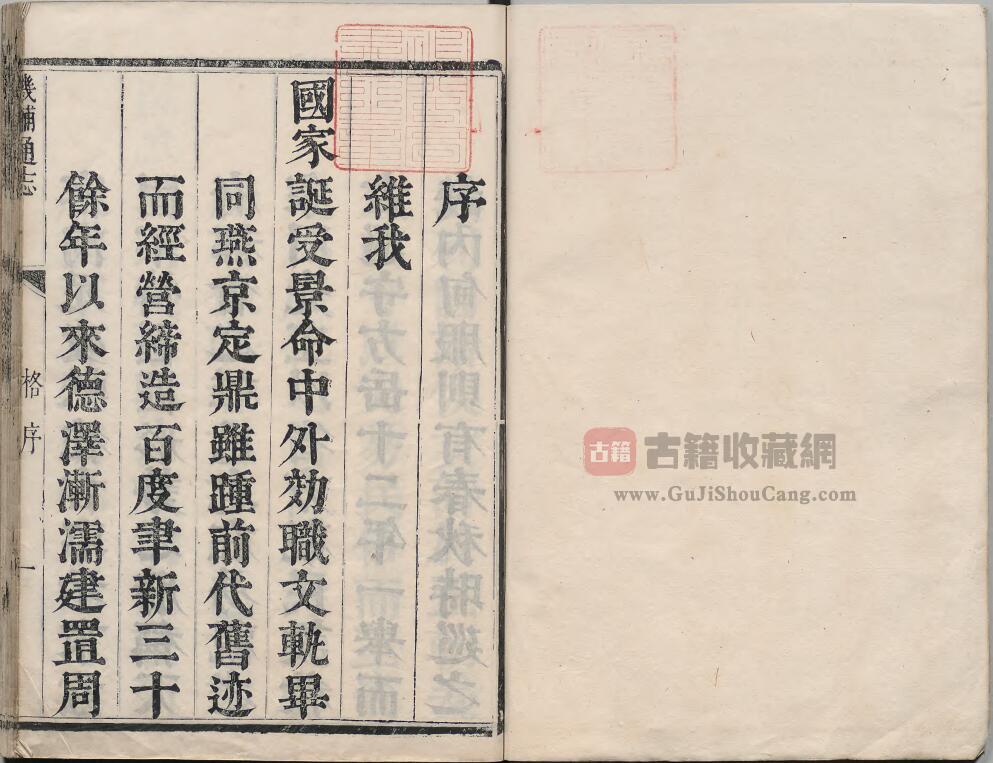 序
維我
國家誕受景命中外効職文軌畢
同燕京定鼎雖踵前代舊迹
而經營締造百度聿新三十
餘年以來德澤漸濡建置周
畿輔通志
格序
一
古籍
古籍收藏網
www.GuJiShouCang.com